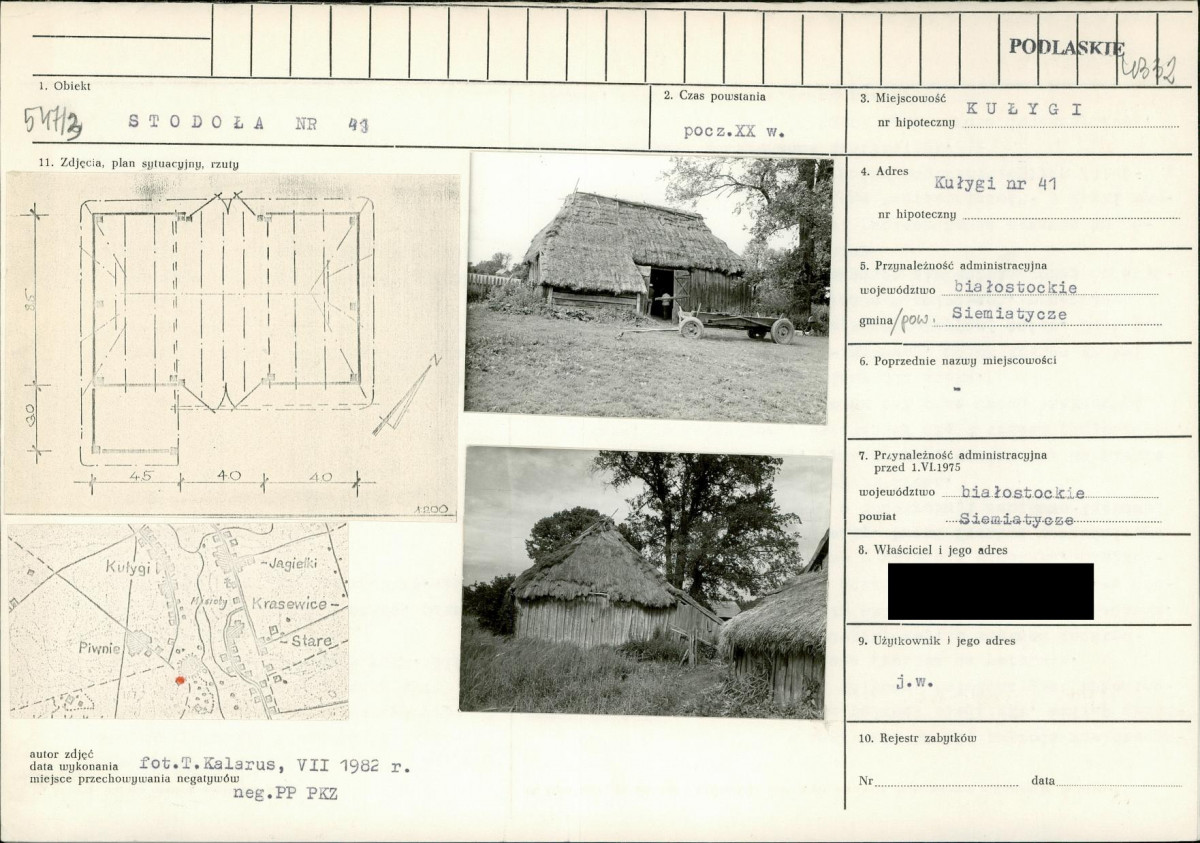 PODLASKIE
1. Obiekt
STODOŁA NR 41
2. Czas powstania
pocz.XX w.
3. Miejscowość KUŁYGI
nr hipoteczny
11. Zdjęcia, plan sytuacyjny, rzuty
85
30
45 40 40
1:200
Kułygi
Jagiełki
Krasewice-
-Stare
Piwnie
4. Adres
Kułygi nr 41
nr hipoteczny
5. Przynależność administracyjna
województwo białostockie
gmina/pow. Siemiatycze
6. Poprzednie nazwy miejscowości
-
7. Przynależność administracyjna
przed 1.VI.1975
województwo białostockie
powiat Siemiatycze
8. Właściciel i jego adres
9. Użytkownik i jego adres
j.w.
10. Rejestr zabytków
Nr data
autor zdjęć
data wykonania fot.T.Kalarus, VII 1982 r.
miejsce przechowywania negatywów
neg.PP PKZ